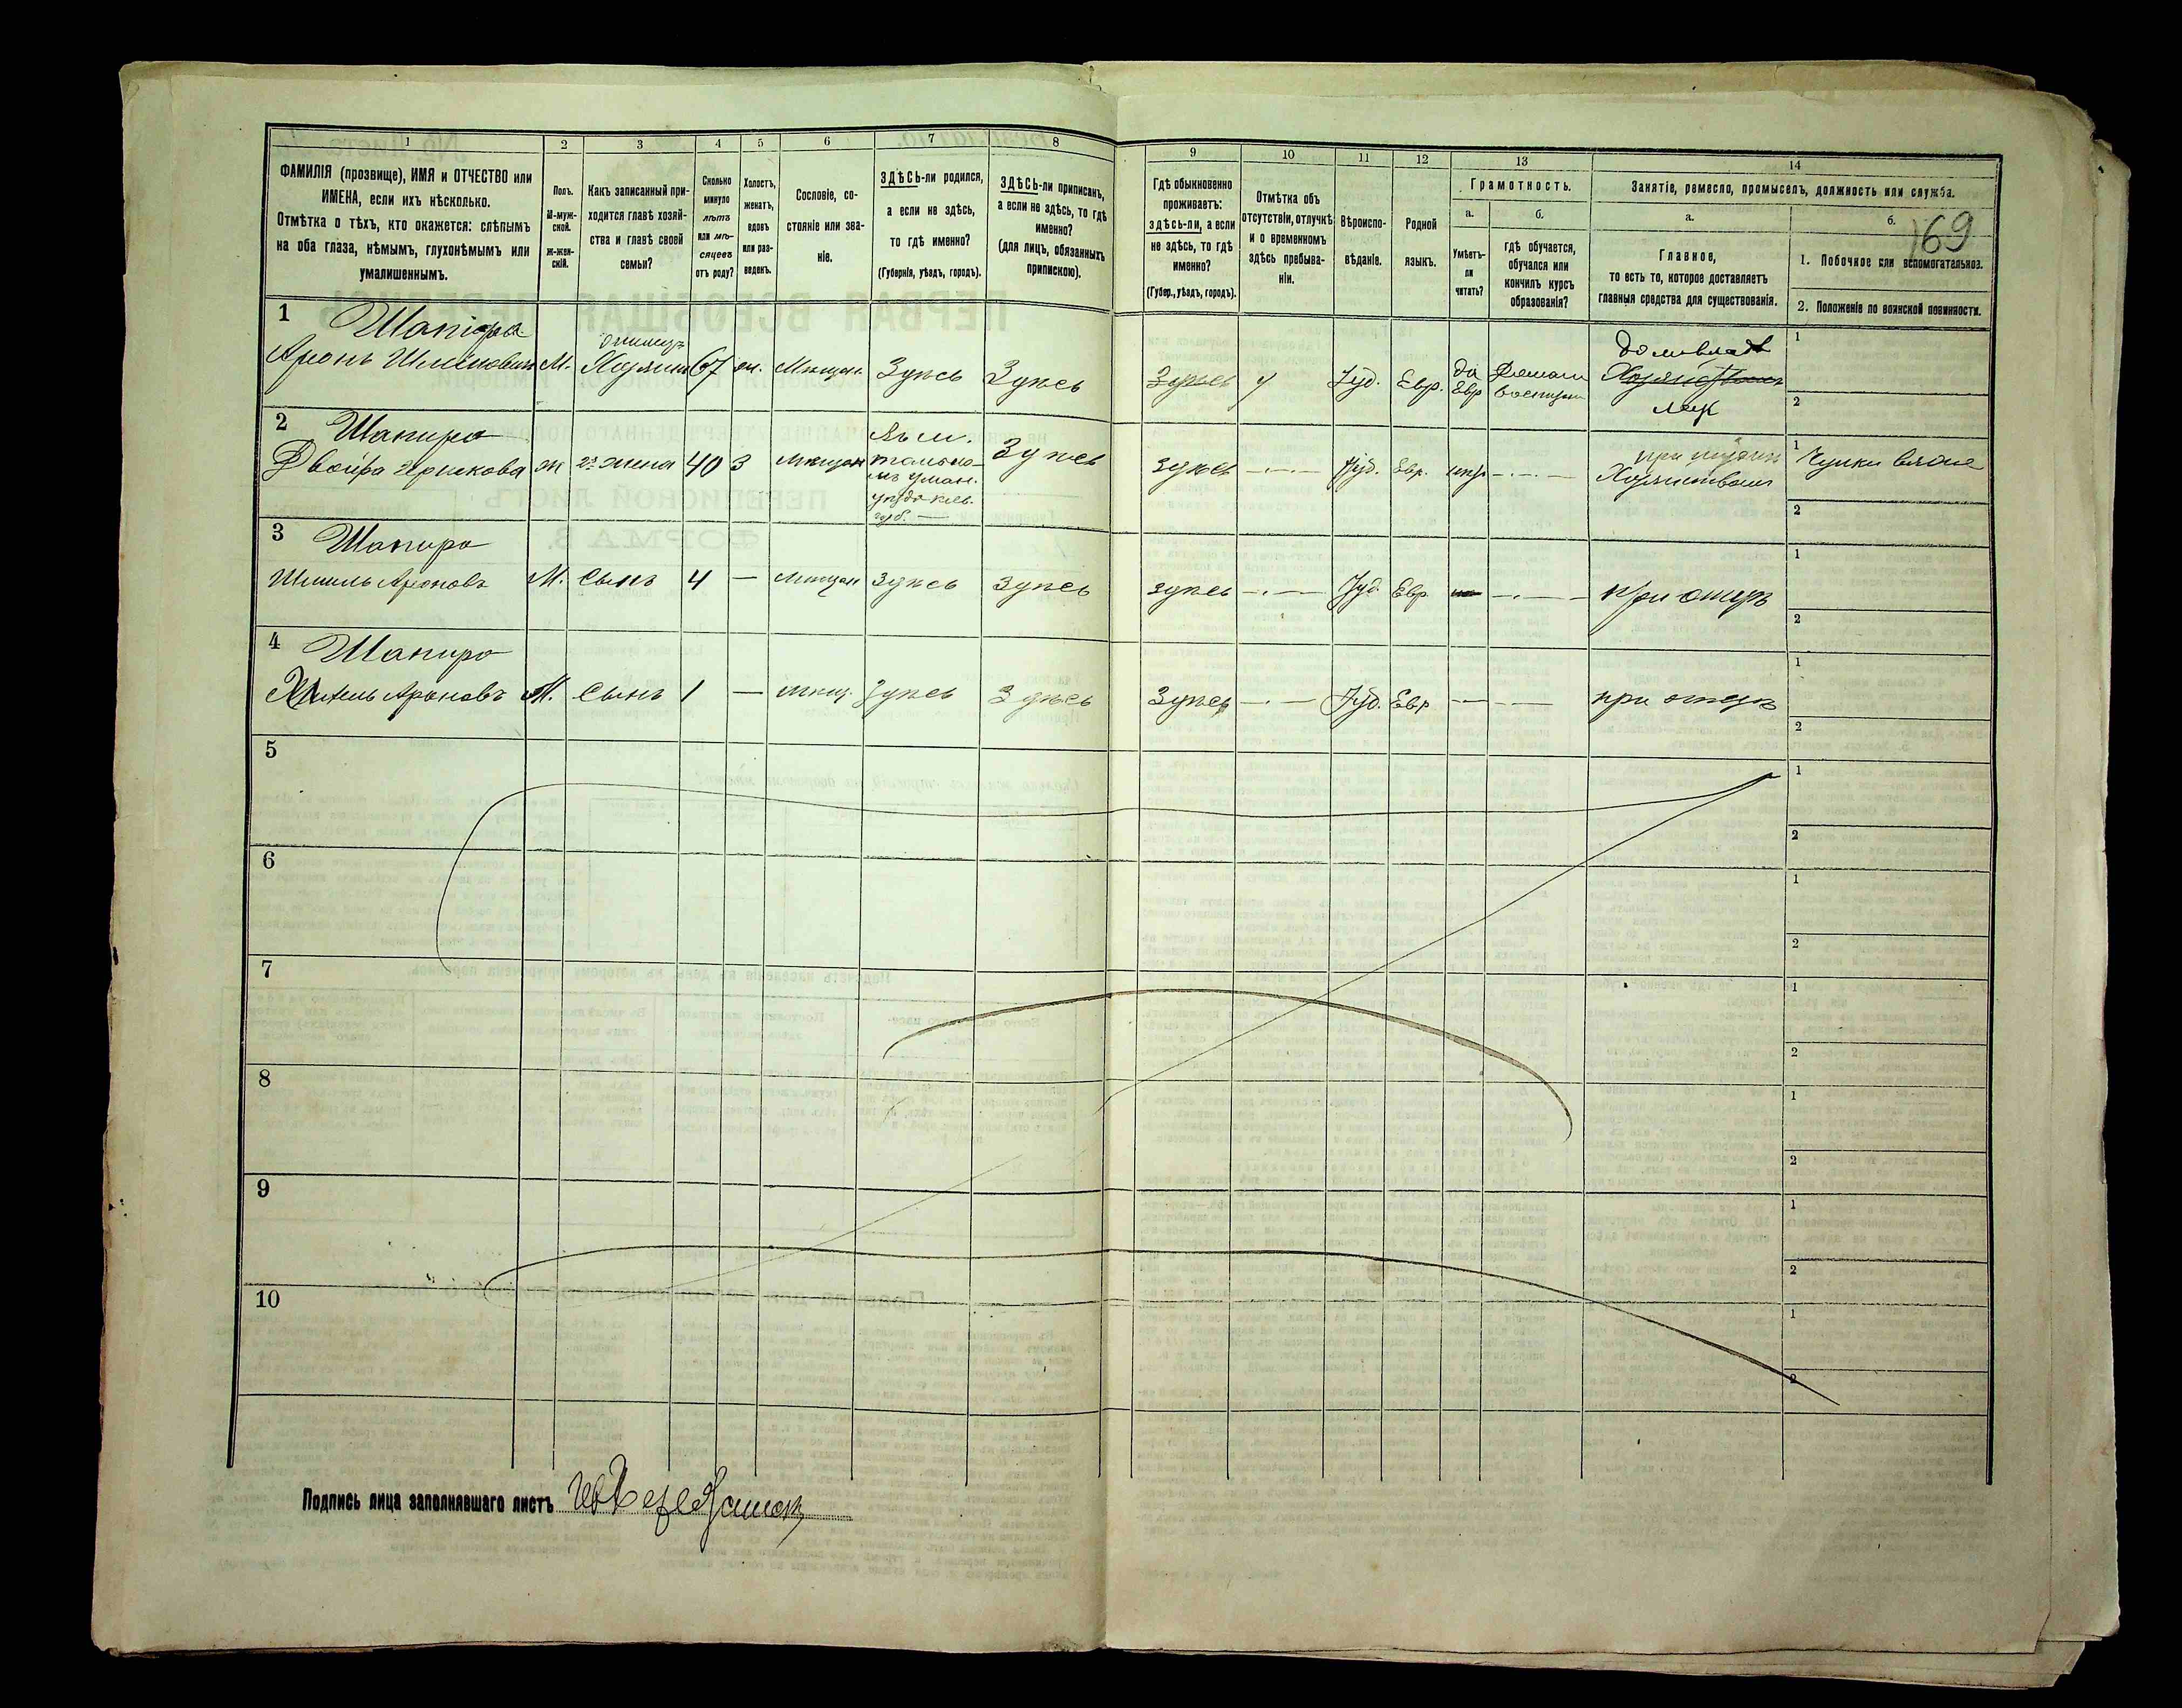 1
2
3
4
5
6
7
8
9
10
11
12
13
14
ФАМИЛІЯ (прозвище), ИМЯ и ОТЧЕСТВО или
ИМЕНА, если ихъ нѣсколько.
Отмѣтка о тѣхъ, кто окажется: слѣпымъ
на оба глаза, нѣмымъ, глухонѣмымъ или
умалишеннымъ.
Полъ.
М-муж-
ской.
Ж-жен-
скій.
Какъ записанный при-
ходится главѣ хозяй-
ства и главѣ своей
семьи?
Сколько
минуло
лѣтъ
или мѣ-
сяцевъ
отъ роду?
Холостъ,
женатъ,
вдовъ
или раз-
веденъ.
Сословіе, со-
стояніе или зва-
ніе.
ЗДѢСЬ-ли родился,
а если не здѣсь,
то гдѣ именно?
(Губернія, уѣздъ, городъ).
ЗДѢСЬ-ли приписанъ,
а если не здѣсь, то гдѣ
именно?
(для лицъ, обязанныхъ
припискою).
Гдѣ обыкновенно
проживаетъ:
здѣсь-ли, а если
не здѣсь, то гдѣ
именно?
(Губер., уѣздъ, городъ).
Отмѣтка объ
отсутствіи, отлучкѣ
и о временномъ
здѣсь пребыва-
ніи.
Вѣроиспо-
вѣданіе.
Родной
языкъ.
Грамотность.
а.
б.
Умѣетъ-
ли
читать?
гдѣ обучается,
обучался или
кончилъ курсъ
образованія?
Занятіе, ремесло, промыселъ, должность или служба.
а.
б.
169
Главное,
то есть то, которое доставляетъ
главныя средства для существованія.
1. Побочное или вспомогательное.
2. Положеніе по воинской повинности.
1 Шапіра
Аронъ М. Хозяинъ 67 Мѣщан Здѣсь Здѣсь Здѣсь Іуд. Евр. да Евр
1
2
2 Шапиро
Двойра Гершкова ж жена 40 З Мѣщан Здѣсь здѣсь Іуд. Евр. Чулки вяже
уман.
губ.
1
2
3 Шапиро
Шмиль Ароновъ М. Сынъ 4 — Мѣщан здѣсь здѣсь здѣсь Іуд. Евр. при отцѣ
1
2
4 Шапиро
Ароновъ М. Сынъ 1 — мѣщ. Здѣсь Здѣсь Здѣсь Іуд. Евр при отцѣ
1
2
5
1
2
6
1
2
7
1
2
8
1
2
9
1
2
10
1
2
Подпись лица заполнявшаго листъ